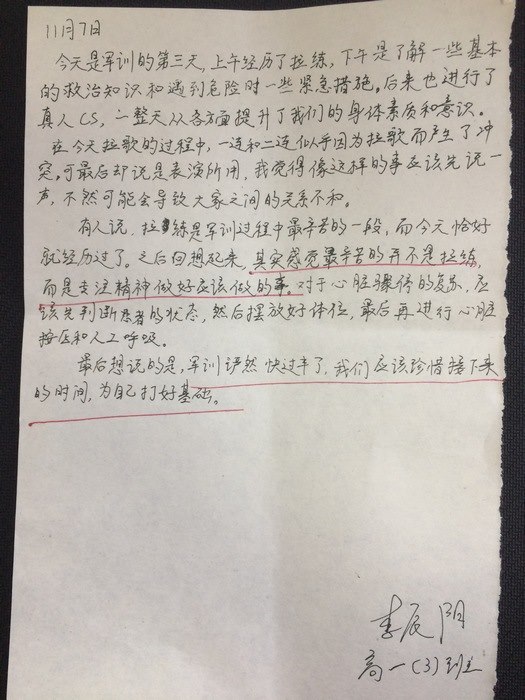 11月7日
今天是军训的第三天,上午经历了拉练,下午是了解一些基本
的救治知识和遇到危险时一些紧急措施。后来也进行了
真人CS,一整天从各方面提升了我们的身体素质和意识。
在今天拉歌的过程中,一连和二连似乎因为拉歌而产生了冲
突。可最后却说是表演所用,我觉得像这样的事应该先说一
声,不然可能会导致大家之间的关系不和。
有人说,拉练是军训过程中最辛苦的一段,而今天恰好
就经历过了。之后回想起来,其实感觉最辛苦的并不是拉练,
而是专注精神做好应该做的事。对于心脏骤停的复苏,应
该先判断患者的状态,然后摆放好体位,最后再进行心脏
按压和人工呼吸。
最后想说的是,军训已然快过半了,我们应该珍惜接下来
的时间,为自己打好基础。
李辰阳
高一(3)班